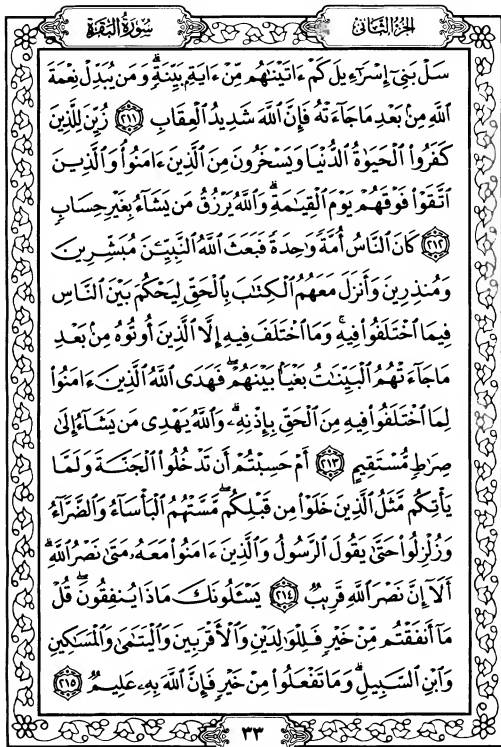 الجزء الثاني
سورة البقرة
سَلْ بَنِىٓ إِسْرَٰٓءِيلَ كَمْ ءَاتَيْنَٰهُم مِّنْ ءَايَةٍۭ بَيِّنَةٍۗ وَمَن يُبَدِّلْ نِعْمَةَ
ٱللَّهِ مِنۢ بَعْدِ مَا جَآءَتْهُ فَإِنَّ ٱللَّهَ شَدِيدُ ٱلْعِقَابِ ٢١١ زُيِّنَ لِلَّذِينَ
كَفَرُوا۟ ٱلْحَيَوٰةُ ٱلدُّنْيَا وَيَسْخَرُونَ مِنَ ٱلَّذِينَ ءَامَنُوا۟ۘ وَٱلَّذِينَ
ٱتَّقَوْا۟ فَوْقَهُمْ يَوْمَ ٱلْقِيَٰمَةِۗ وَٱللَّهُ يَرْزُقُ مَن يَشَآءُ بِغَيْرِ حِسَابٍ
٢١٢ كَانَ ٱلنَّاسُ أُمَّةً وَٰحِدَةً فَبَعَثَ ٱللَّهُ ٱلنَّبِيِّۦنَ مُبَشِّرِينَ
وَمُنذِرِينَ وَأَنزَلَ مَعَهُمُ ٱلْكِتَٰبَ بِٱلْحَقِّ لِيَحْكُمَ بَيْنَ ٱلنَّاسِ
فِيمَا ٱخْتَلَفُوا۟ فِيهِۚ وَمَا ٱخْتَلَفَ فِيهِ إِلَّا ٱلَّذِينَ أُوتُوهُ مِنۢ بَعْدِ
مَا جَآءَتْهُمُ ٱلْبَيِّنَٰتُ بَغْيًۢا بَيْنَهُمْۖ فَهَدَى ٱللَّهُ ٱلَّذِينَ ءَامَنُوا۟
لِمَا ٱخْتَلَفُوا۟ فِيهِ مِنَ ٱلْحَقِّ بِإِذْنِهِۦۗ وَٱللَّهُ يَهْدِى مَن يَشَآءُ إِلَىٰ
صِرَٰطٍ مُّسْتَقِيمٍ ٢١٣ أَمْ حَسِبْتُمْ أَن تَدْخُلُوا۟ ٱلْجَنَّةَ وَلَمَّا
يَأْتِكُم مَّثَلُ ٱلَّذِينَ خَلَوْا۟ مِن قَبْلِكُمۖ مَّسَّتْهُمُ ٱلْبَأْسَآءُ وَٱلضَّرَّآءُ
وَزُلْزِلُوا۟ حَتَّىٰ يَقُولَ ٱلرَّسُولُ وَٱلَّذِينَ ءَامَنُوا۟ مَعَهُۥ مَتَىٰ نَصْرُ ٱللَّهِۗ
أَلَآ إِنَّ نَصْرَ ٱللَّهِ قَرِيبٌ ٢١٤ يَسْـَٔلُونَكَ مَاذَا يُنفِقُونَۖ قُلْ
مَآ أَنفَقْتُم مِّنْ خَيْرٍ فَلِلْوَٰلِدَيْنِ وَٱلْأَقْرَبِينَ وَٱلْيَتَٰمَىٰ وَٱلْمَسَٰكِينِ
وَٱبْنِ ٱلسَّبِيلِۗ وَمَا تَفْعَلُوا۟ مِنْ خَيْرٍ فَإِنَّ ٱللَّهَ بِهِۦ عَلِيمٌ ٢١٥
٣٣